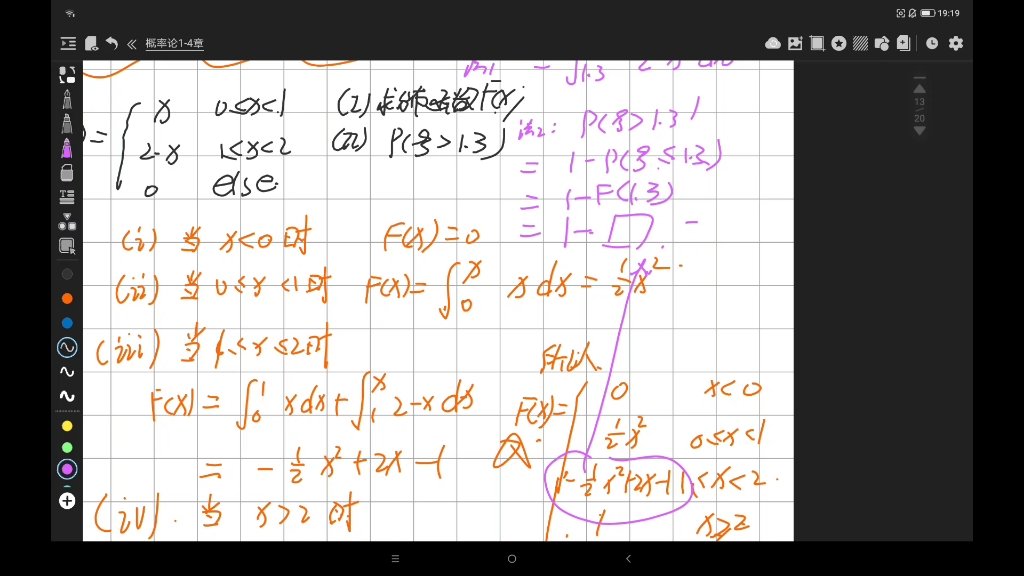 19:19
概率论1-4章
13
20
= { x 0≤x<1 (2) 求分布函数 F(x)
2-x 1≤x<2 (3) P(ξ>1.3)
0 else
法2: P(ξ>1.3)
= 1-P(ξ≤1.3)
= 1-F(1.3)
= 1-
(i) 当 x<0 时 F(x)=0
(ii) 当 0≤x<1时 F(x)=∫₀ˣ x dx = ½x².
(iii) 当 1≤x≤2时
F(x) = ∫₀¹ x dx + ∫₁ˣ 2-x dx
= -½x²+2x-1
(iv). 当 x>2 时
所以
F(x)= { 0 x<0
½x² 0≤x<1
-½x²+2x-1 1≤x<2.
1 x≥2